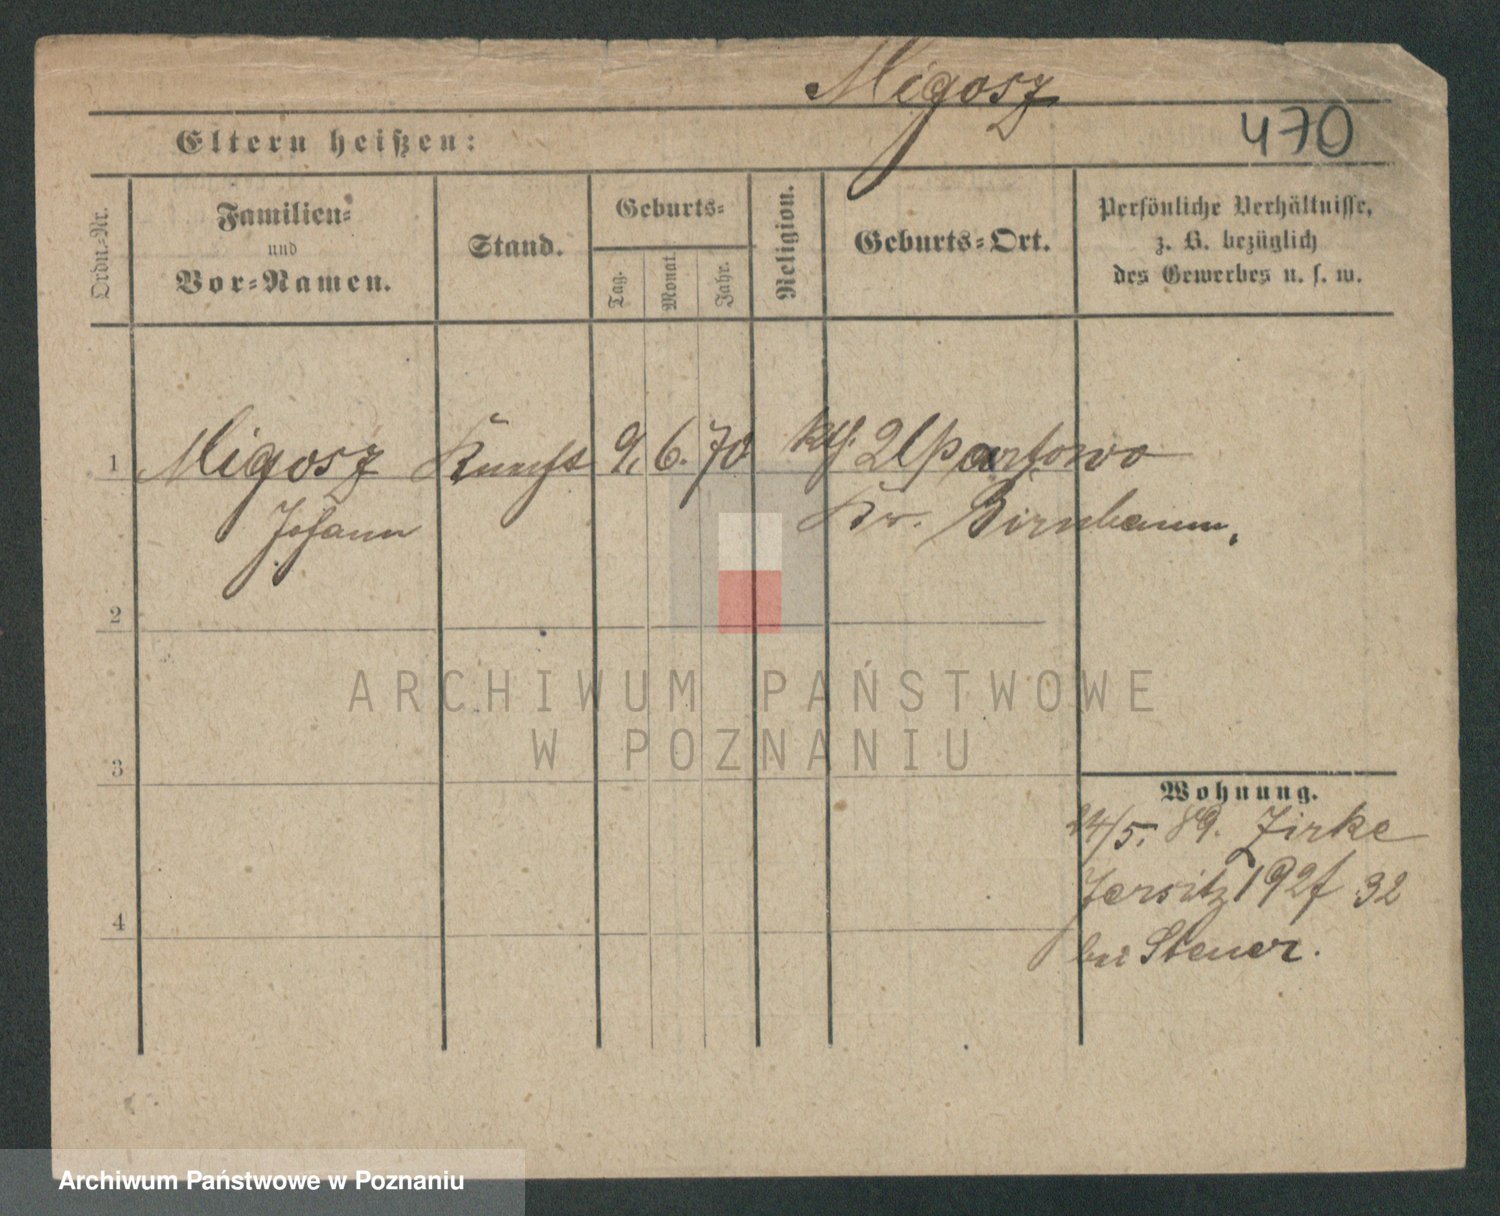 Migosz
470
Eltern heißen:
Ordn.-Nr.
Familien-
und
Vor-Namen.
Stand.
Geburts-
Tag.
Monat.
Jahr.
Religion.
Geburts-Ort.
Persönliche Verhältnisse,
z. B. bezüglich
des Gewerbes u. s. w.
1 Migosz Knecht 9. 6. 70 kth.
Johann Kr. Birnbaum.
2
3
4
Wohnung.
24/5. 89. Zirke
Jersitz 192f 32
bei Steuer.
ARCHIWUM PAŃSTWOWE
W POZNANIU
Archiwum Państwowe w Poznaniu